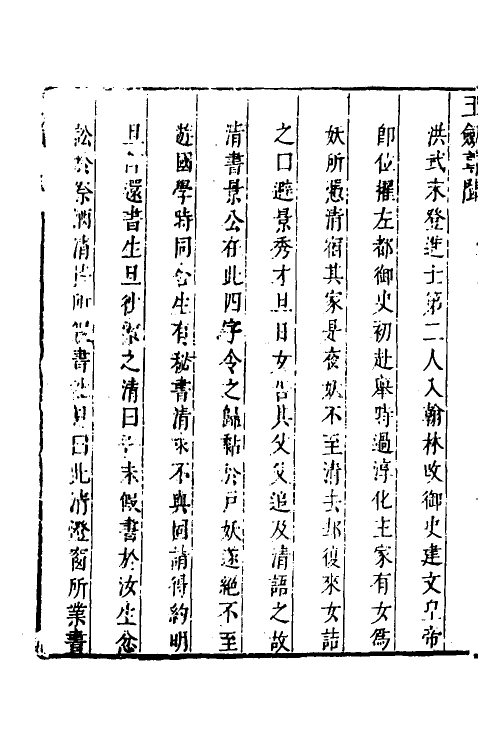 玉劍尊聞
洪武末登進士第二人入翰林改御史建文皇帝
卽位擢左都御史初赴舉時過淳化主家有女爲
妖所憑清宿其家是夜妖不至清去郤復來女詰
之曰避景秀才旦日女告其父父追及清語之故
清書景公在此四字令之歸黏於戶妖遂絕不至
遊國學時同舍生有秘書清求不與固請得約明
旦卽還書生旦往索之清曰吾未假書於汝生忿
訟於祭酒清持所假書往見曰此清燈窗所業書